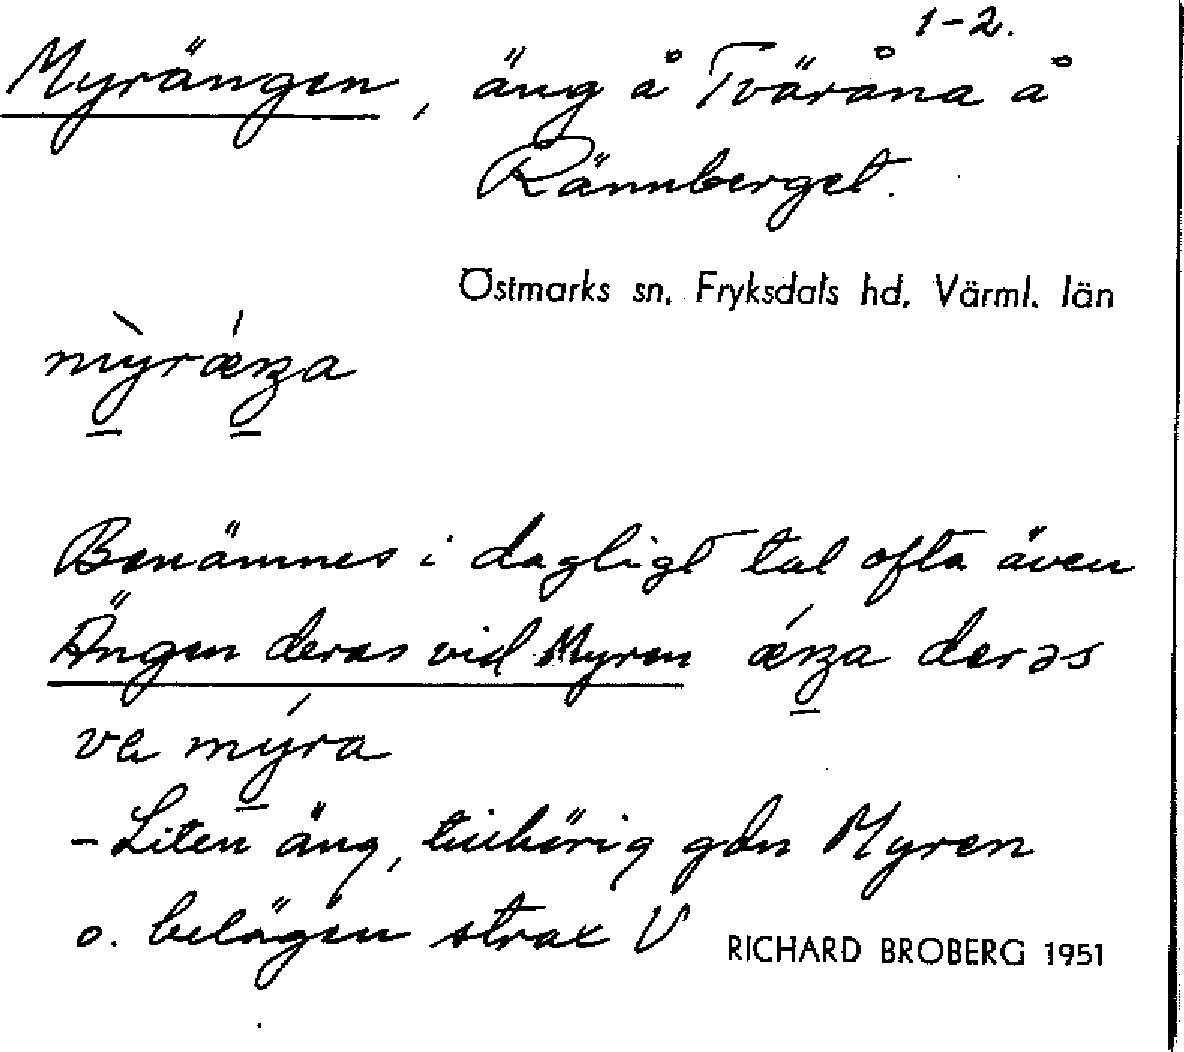 1-2.
Myrängen, äng å Tväråna å
Rännberget.
Östmarks sn. Fryksdals hd. Värml. län
mỳrǽŋa
Benämnes i dagligt tal ofta även
Ängen deras vid Myren ǽŋa derəs
va mýra
- Liten äng, tillhörig gdn Myren
o. belägen strax V
RICHARD BROBERG 1951